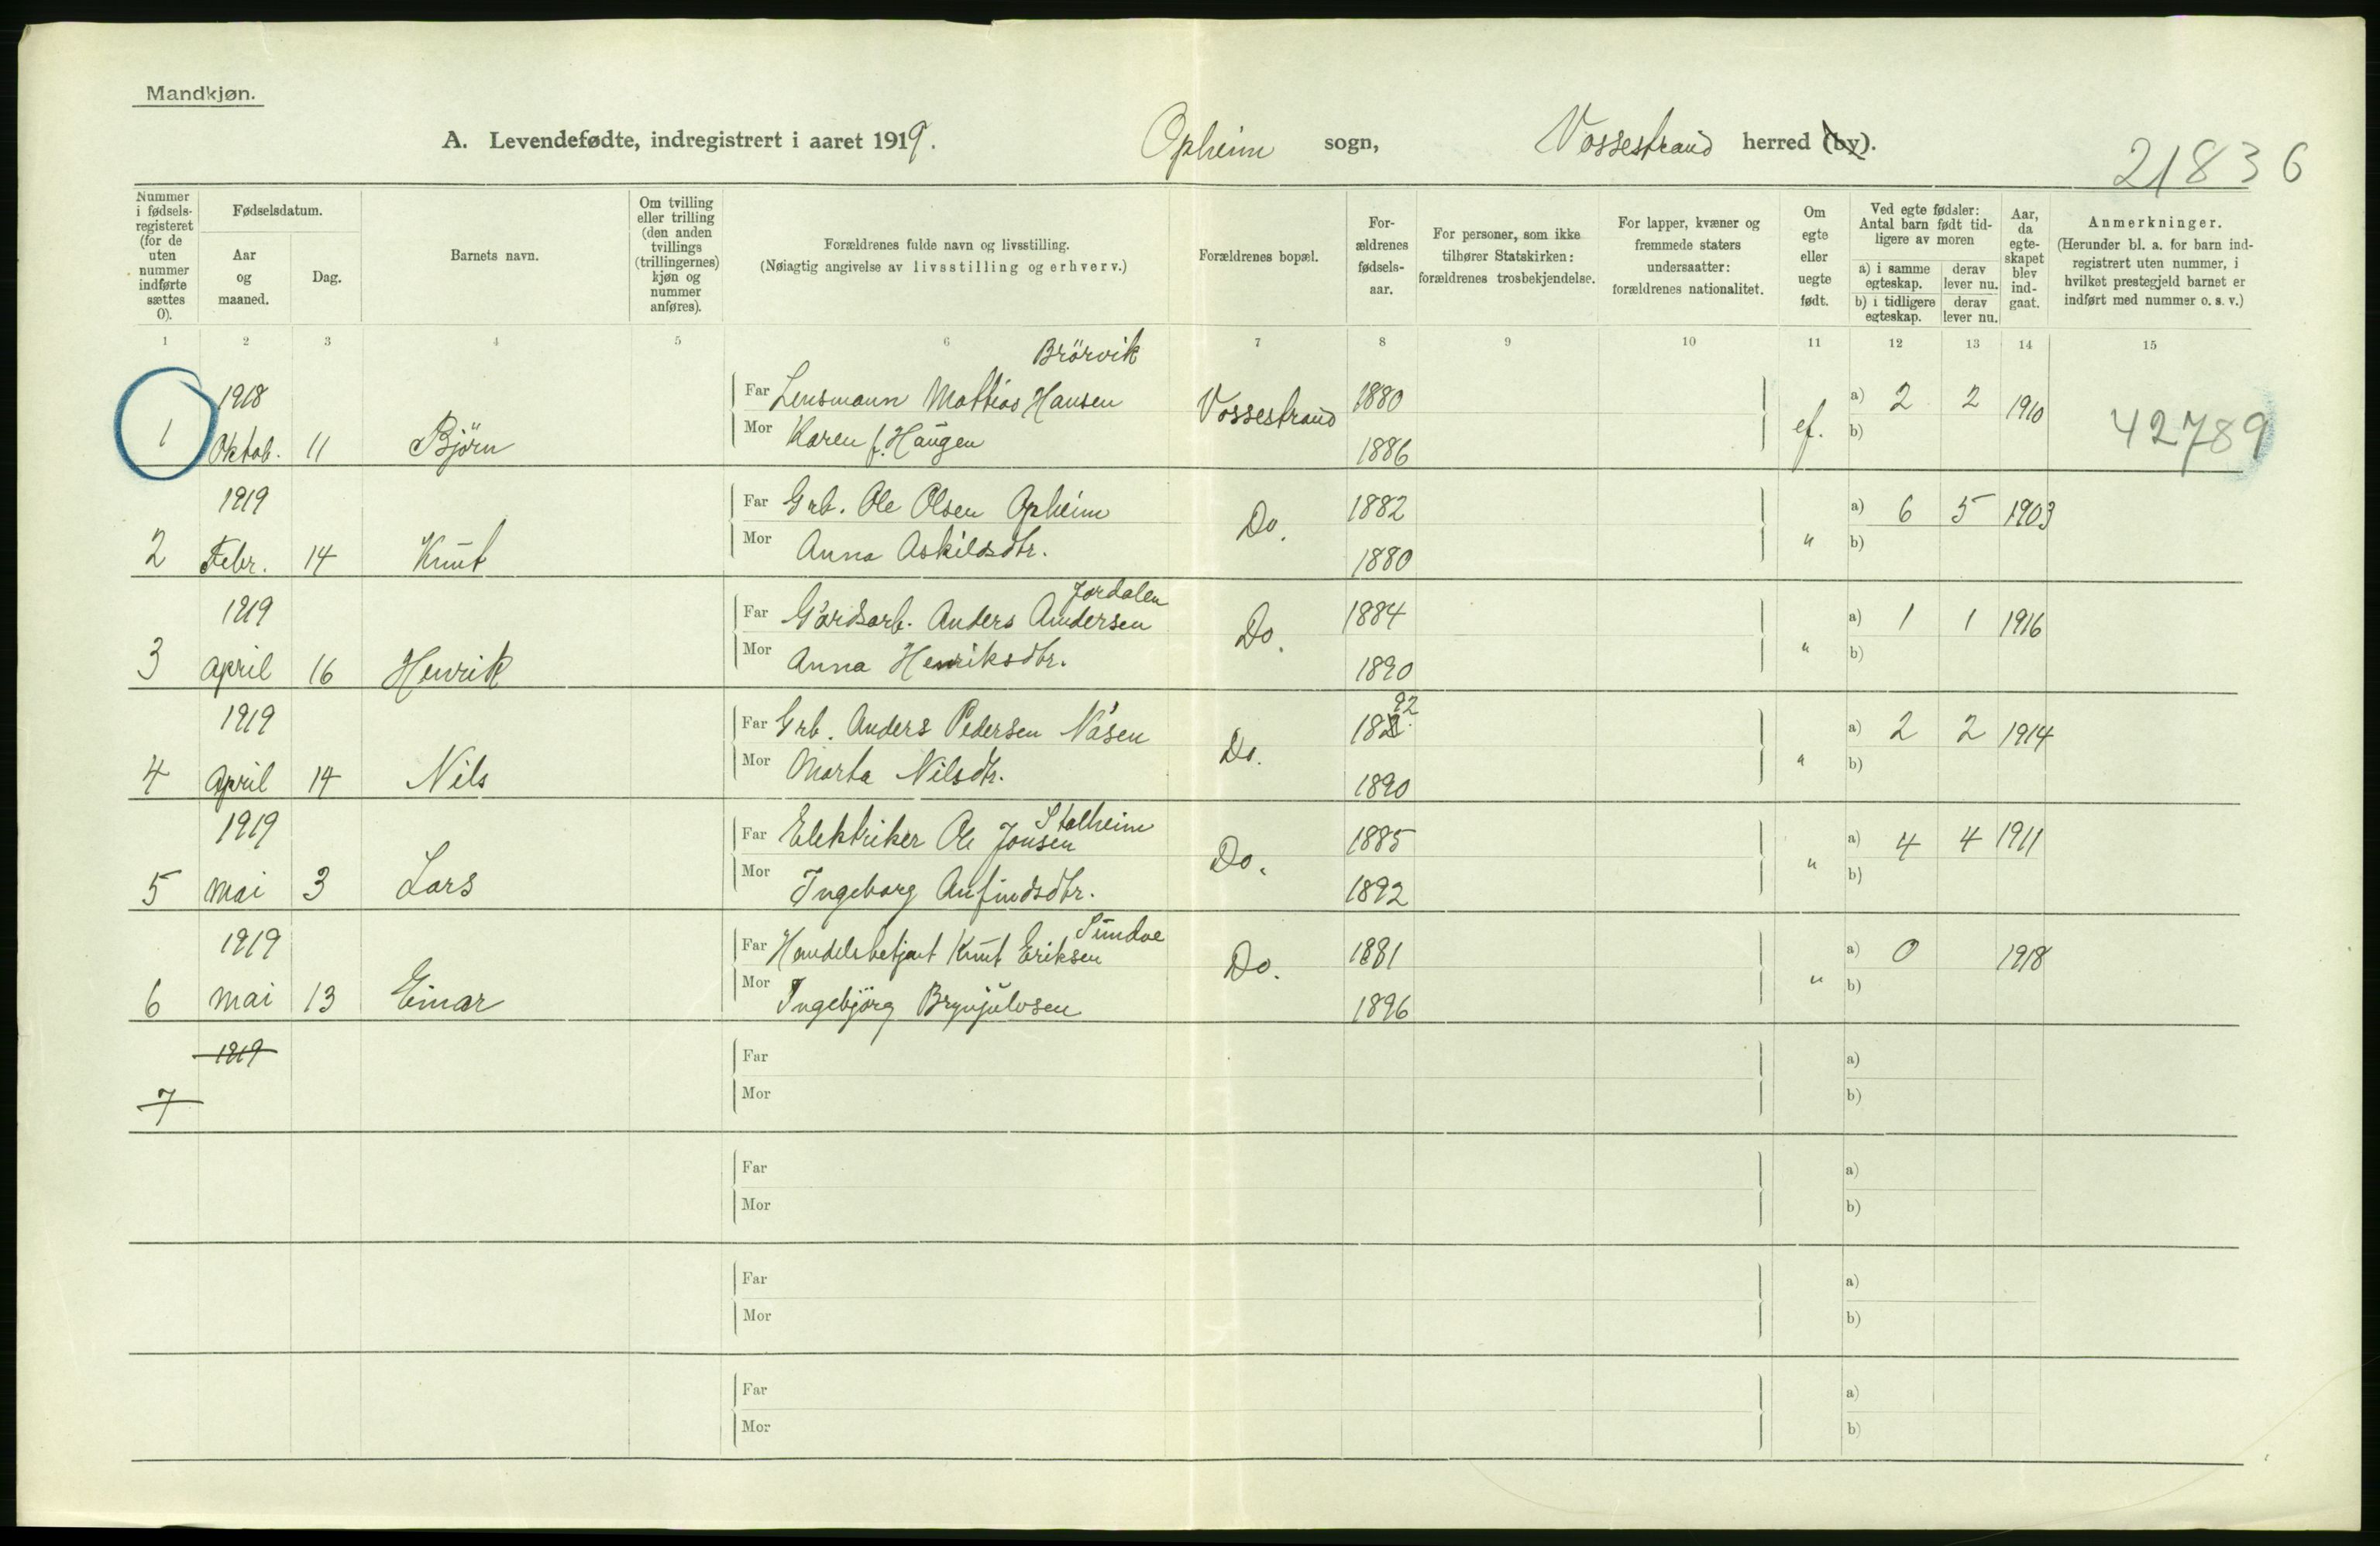 Mandkjøn.
A. Levendefødte, indregistrert i aaret 1919. Opheim sogn, Vossestrand herred (by).
21836
Nummer i fødsels-registeret (for de uten nummer indførte sættes 0).
Fødselsdatum.
Aar og maaned.
Dag.
Barnets navn.
Om tvilling eller trilling (den anden tvillings (trillingernes) kjøn og nummer anføres).
Forældrenes fulde navn og livsstilling.
(Nøiagtig angivelse av livsstilling og erhverv.)
Forældrenes bopæl.
For-ældrenes fødsels-aar.
For personer, som ikke tilhører Statskirken: forældrenes trosbekjendelse.
For lapper, kvæner og fremmede staters undersaatter: forældrenes nationalitet.
Om egte eller uegte født.
Ved egte fødsler: Antal barn født tid-ligere av moren
a) i samme egteskap.
derav lever nu.
b) i tidligere egteskap.
derav lever nu.
Aar, da egte-skapet blev ind-gaat.
Anmerkninger.
(Herunder bl. a. for barn ind-registrert uten nummer, i hvilket prestegjeld barnet er indført med nummer o. s. v.)
1 2 3 4 5 6 7 8 9 10 11 12 13 14 15
Brörvik
1918 Far Lensmann Mathias Hansen Vossestrand 1880 a) 2 2 1910
1 Oktob. 11 Björn Mor Karen f. Haugen 1886 ef. b) 42789
1919 Far Grb. Ole Olsen Opheim Do. 1882 a) 6 5 1903
2 Febr. 14 Knut Mor Anna Askildsdtr. 1880 " b)
Jordalen
1919 Far Gårdsarb. Anders Andersen Do. 1884 a) 1 1 1916
3 April 16 Henrik Mor Anna Henriksdtr. 1890 " b)
92
1919 Far Grb. Anders Pedersen Nåsen Do. 188 a) 2 2 1914
4 April 14 Nils Mor Marta Nilsdtr. 1890 " b)
Stalheim
1919 Far Elektriker Ole Jonsen Do. 1885 a) 4 4 1911
5 Mai 3 Lars Mor Ingeborg Anfindsdtr. 1892 " b)
Sundve
1919 Far Handelsbetjent Knut Eriksen Do. 1891 a) 0 1918
6 Mai 13 Einar Mor Ingebjörg Brynjulvsen 1896 " b)
1919 Far a)
7 Mor b)
Far a)
Mor b)
Far a)
Mor b)
Far a)
Mor b)